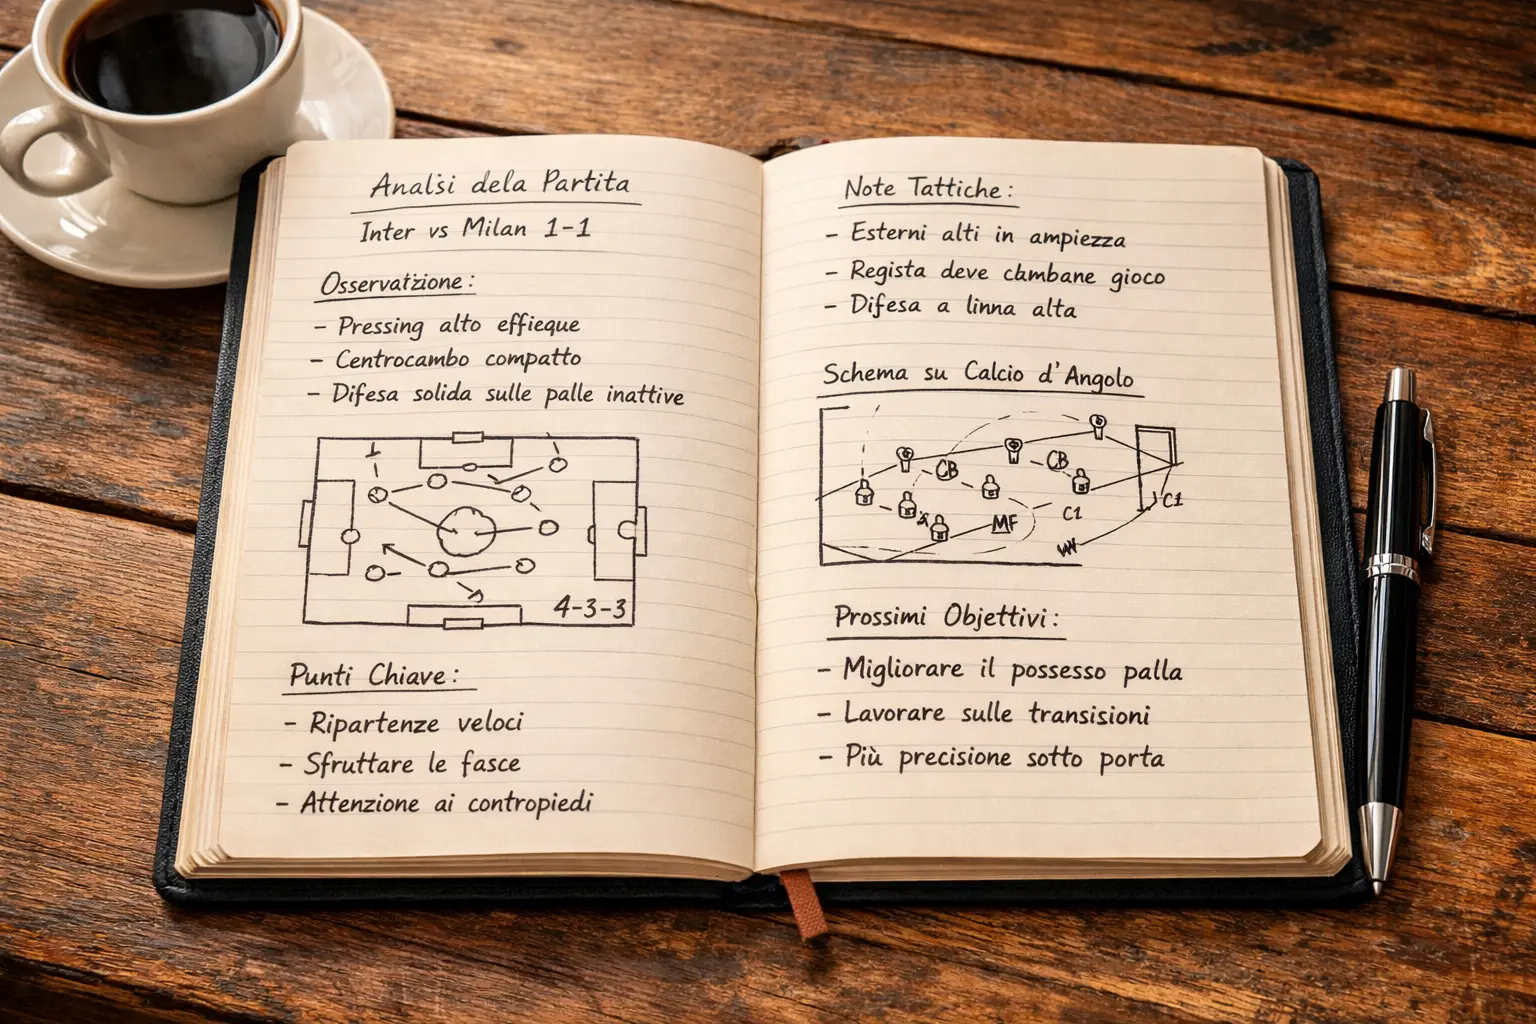 Analsi dela Partita
Inter vs Milan 1-1
Osservatzione:
- Pressing alto effieque
- Centrocambo compatto
- Difesa solida sulle palle inattive
4-3-3
Punti Chiave:
- Ripartenze veloci
- Sfruttare le fasce
- Attenzione ai contropiedi
Note Tattiche:
- Esterni alti in ampiezza
- Regista deve cambane gioco
- Difesa a linna alta
Schema su Calcio d'Angolo
CB
CB
MF
C1
C1
Prossimi Objettivi:
- Migliorare il possesso palla
- Lavorare sulle transisioni
- Più precisione sotto porta